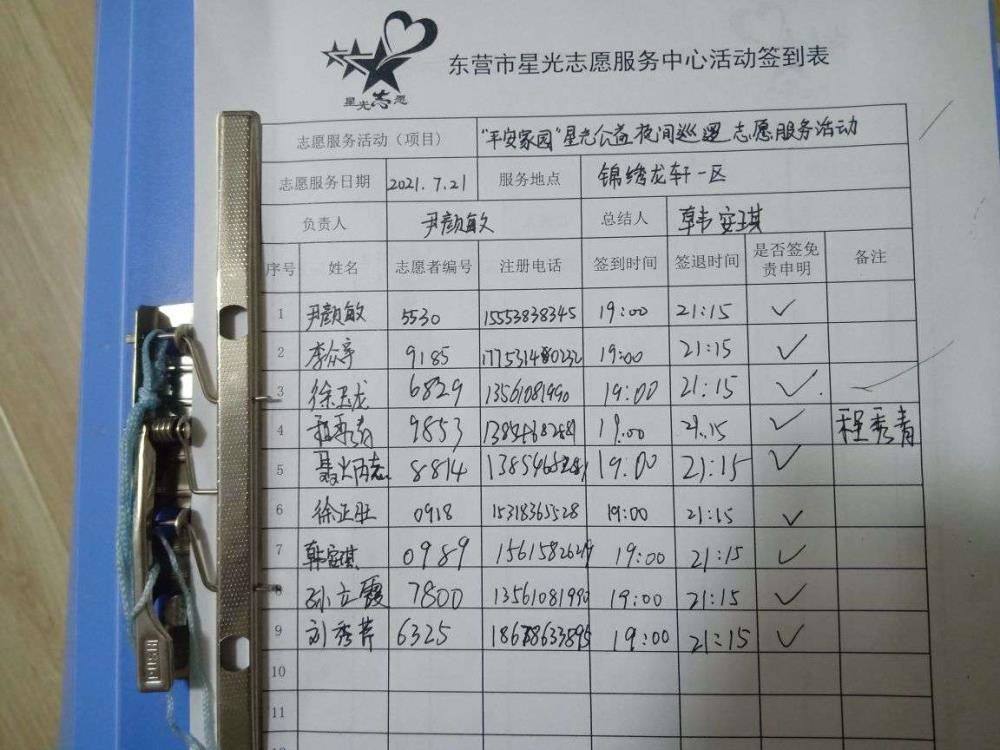 星光志愿
东营市星光志愿服务中心活动签到表
志愿服务活动（项目） “平安家园”星光公益夜间巡逻志愿服务活动
志愿服务日期 2021.7.21 服务地点 锦绣龙轩一区
负责人 尹颜敏 总结人 韩安琪
序号 姓名 志愿者编号 注册电话 签到时间 签退时间 是否签免责申明 备注
1 尹颜敏 5530 15553838345 19:00 21:15 ✓
2 李众亭 9185 19:00 21:15 ✓
3 6829 13561081990 19:00 21:15 ✓
4 程秀青 9853 19:00 21:15 ✓ 程秀青
5 聂炳志 8814 19:00 21:15 ✓
6 徐正旺 0918 15318365528 19:00 21:15 ✓
7 韩安琪 0989 19:00 21:15 ✓
8 孙立霞 7800 13561081990 19:00 21:15 ✓
9 刘秀芹 6325 19:00 21:15 ✓
10
11
PUSH